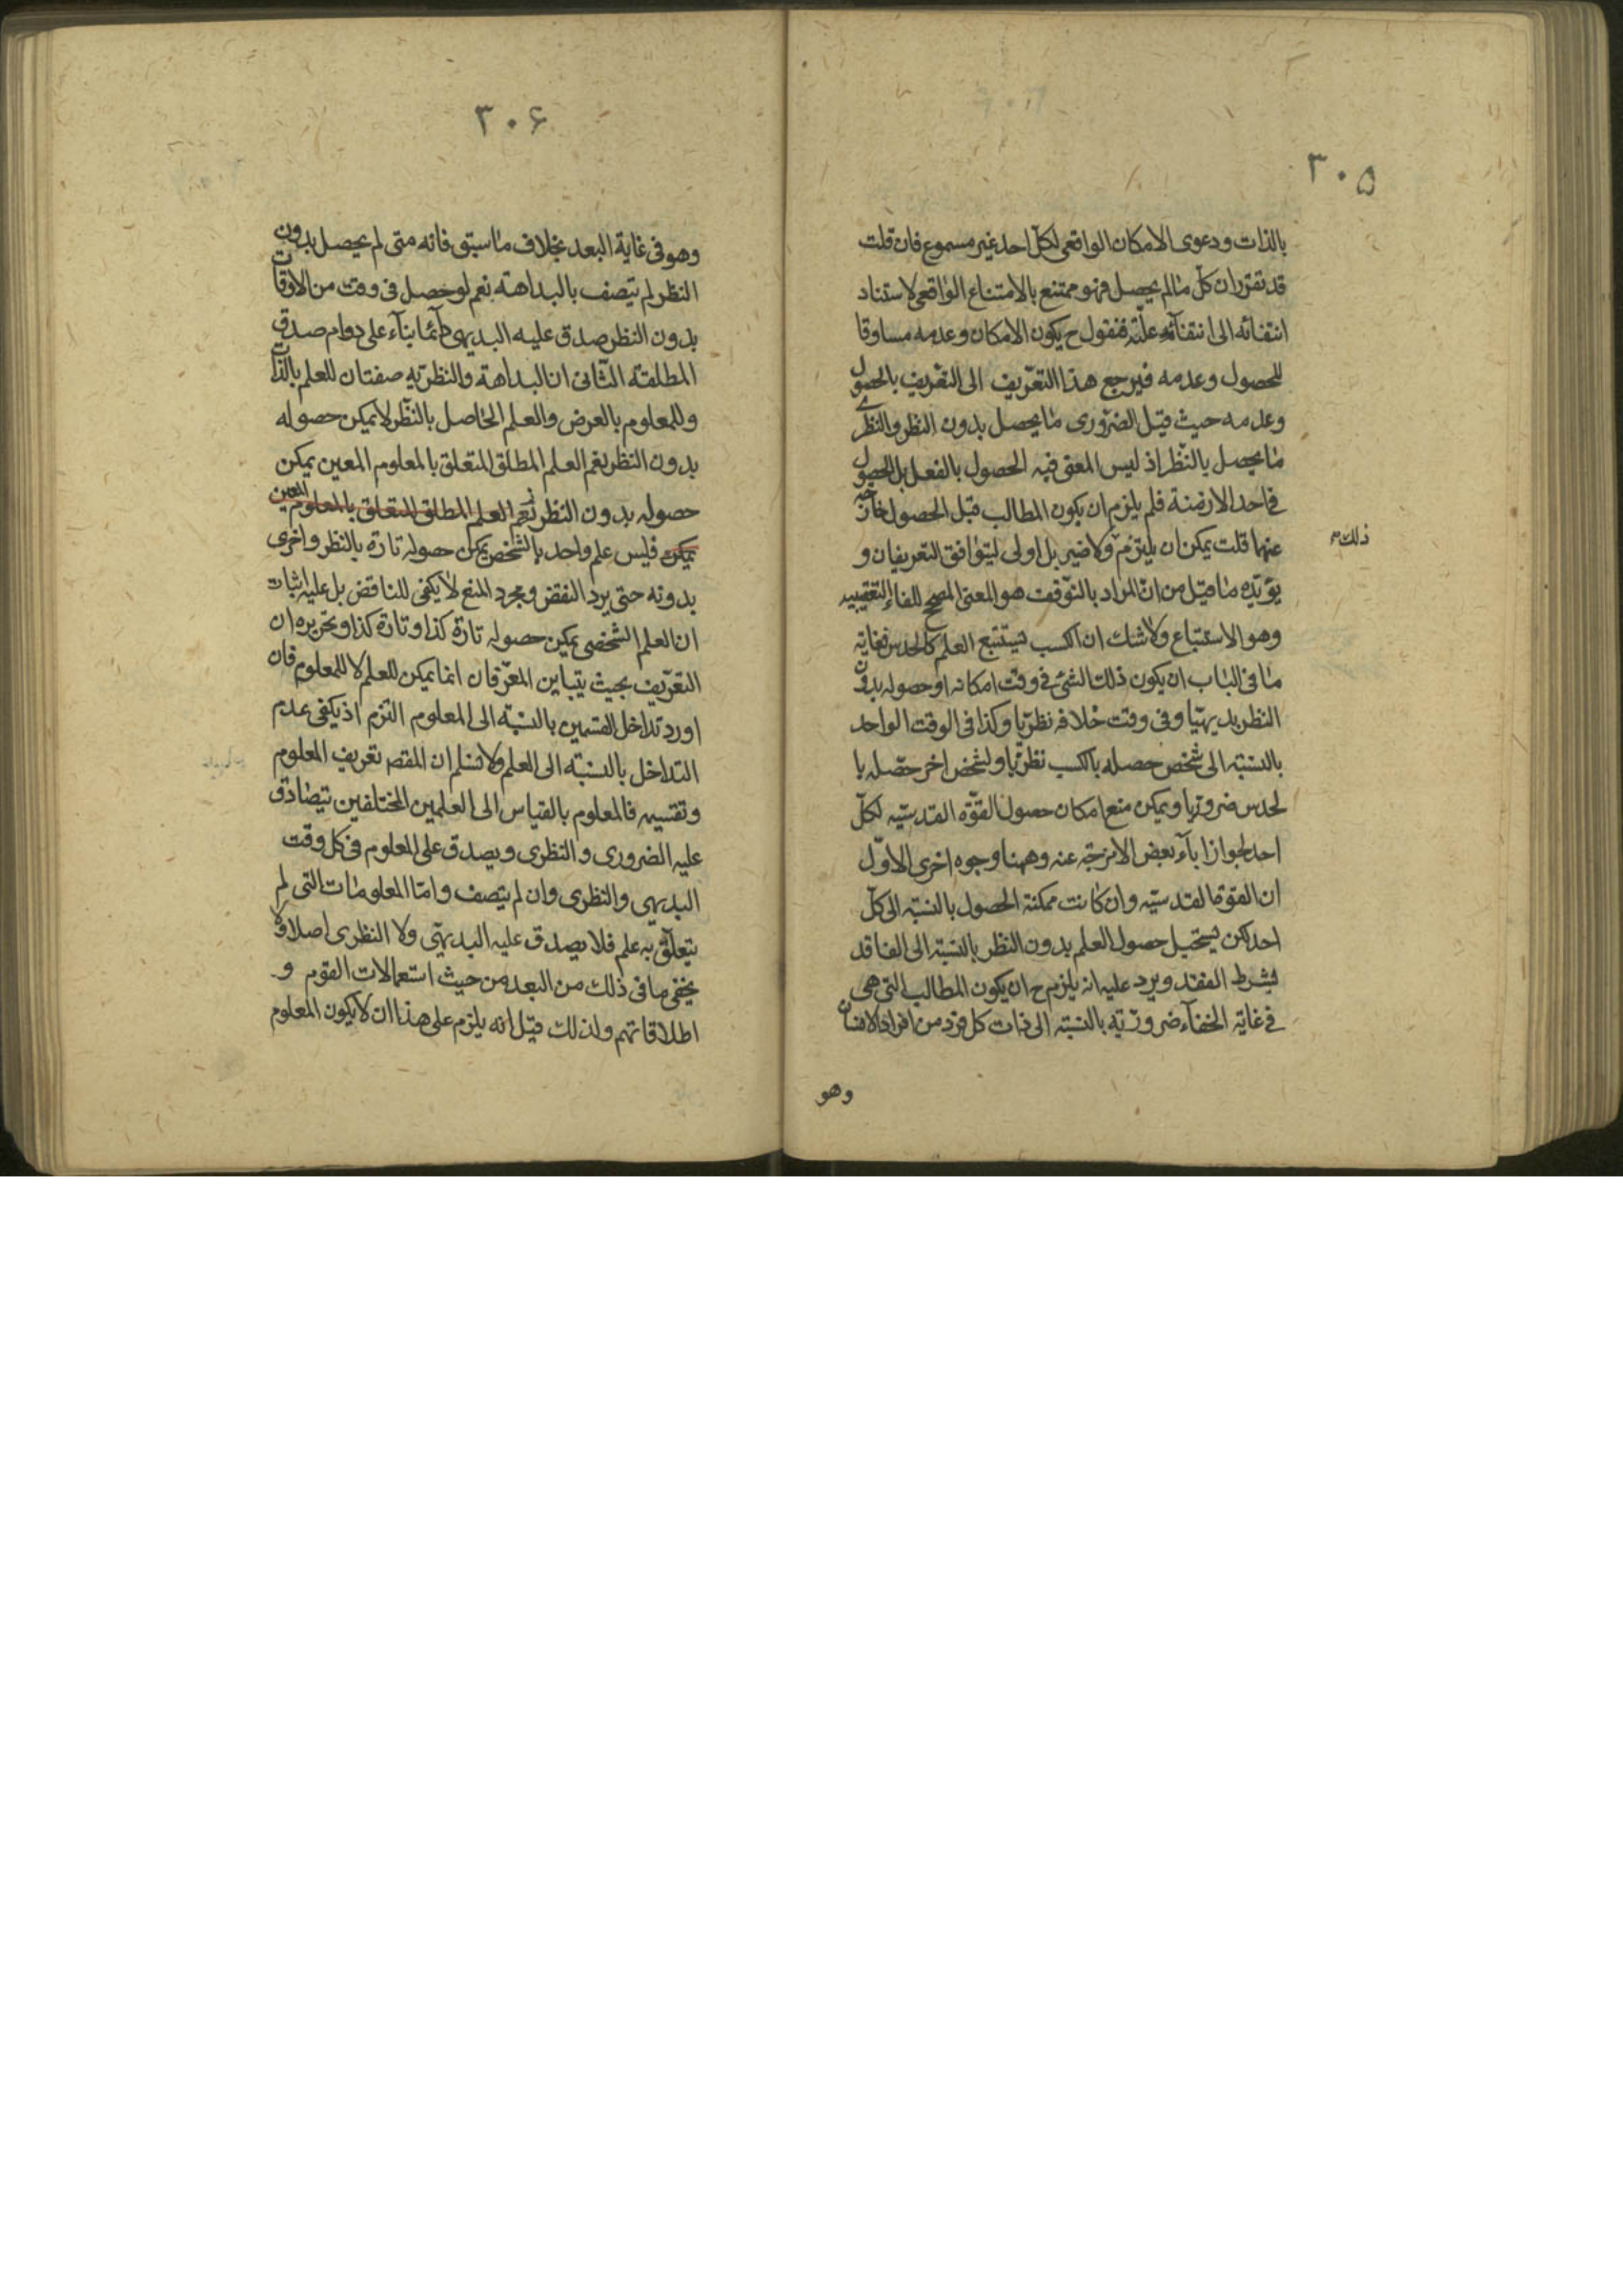 ٣٠۵
بالذات ودعوى الامكان الواقعى لكلّ احد غير مسموع فان قلت
قد تقرّر ان كلّ ما لم يحصل فهو ممتنع بالامتناع الواقعى لاستناد
انتفائه الى انتفآئه علّته فنقول ح يكون الامكان وعدمه مساوقا
للحصول وعدمه فيرجع هذا التعّريف الى التعّريف بالحصول
وعدمه حيث قيل الضّرورى ما يحصل بدون النظر والنظرى
ما يحصل بالنّظر اذ ليس المعنى فيه الحصول بالفعل بل الحصول
فى احد الازمنة فلم يلزم ان يكون المطالب قبل الحصول خارجة
عنهما قلت يمكن ان يلتزم ولا ضير بل اولى ليتوافق التعريفان و
ذلك م
يؤيّده ما قيل من انّ المراد بالتّوقف هو المعنى المصحح للفاء التعقيبيه
وهو الاستتباع ولا شك ان الكسب يستتبع العلم كالحدس فغاية
ما فى الباب ان يكون ذلك الشئ فى وقت امكانه او حصوله بدون
النظر بديهيّا وفى وقت خلافه نظريّا وكذا فى الوقت الواحد
بالنسبّة الى شخص حصله بالكسب نظريّا ولشخص اخر حصّله با
لحدس ضروريا ويمكن منع امكان حصول القوّه القدسيّه لكلّ
احد لجواز اباء بعض الامزجة عنه وههنا وجوه اخرى الاوّل
ان القوة القدسيّه وان كانت ممكنة الحصول بالنسبّة الى كلّ
احد لكن يستحيل حصول العلم بدون النظر بالنسبة الى الفاقد
بشرط الفقد ويرد عليه انه يلزم ح ان يكون المطالب التى هى
فى غاية الخفآء ضروريّه بالنسبّة الى ذات كل فرد من افراد الانسان
وهو
٣٠۶
وهو فى غاية البعد بخلاف ما سبق فانه متى لم يحصل بدون
النظر لم يتصف بالبداهة نعم لو حصل فى وقت من الاوقات
بدون النظر صدق عليه البديهى دآئما بنآء على دوام صدق
المطلقة الثانى ان البداهة والنظريّه صفتان للعلم بالذات
وللمعلوم بالعرض والعلم الحاصل بالنّظر لا يمكن حصوله
بدون النظر نعم العلم المطلق المتعلق بالمعلوم المعين يمكن
حصوله بدون النظر نعم العلم المطلق المتعلق بالمعلوم المعين
يمكن فليس علم واحد بالشخص يمكن حصوله تارة بالنظر واخرى
بدونه حتى يرد النقض ومجرد المنع لا يكفى للناقض بل عليه اثبات
ان العلم الشخصى يمكن حصوله تارة كذا وتارة كذا وتحريره ان
التعّريف بحيث يتباين المعرّفان انما يمكن للعلم لا للمعلوم فان
اورد تداخل القسمين بالنسبّة الى المعلوم التزم اذ يكفى عدم
التداخل بالنسبّة الى العلم ولا نسلم ان المقصد تعريف المعلوم
وتقسيمه فالمعلوم بالقياس الى العلمين المختلفين يتصادق
عليه الضرورى والنظرى ويصدق على المعلوم فى كل وقت
البديهى والنظرى وان لم يتصف وامّا المعلومات التى لم
يتعلّق به علم فلا يصدق عليه البديهىّ ولا النظرى اصلا ولا
يخفى ما فى ذلك من البعد من حيث استعمالات القوم و
اطلاقاتهم ولذلك قيل انه يلزم على هذا ان لا يكون المعلوم